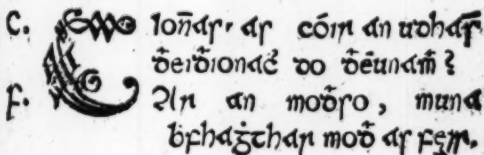 C. Cion̄as, as cóir an udhas̄
ḋeiḋionaċ do ḋéunaṁ?
F. Air an moḋso, muna
bfhaġthar moḋ as fęrr.